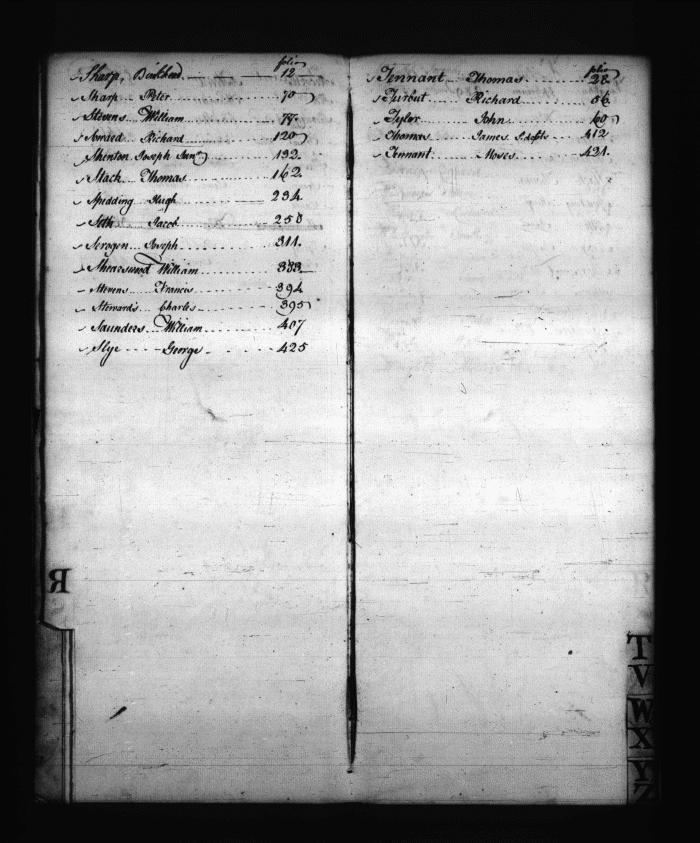 folio
Sharp, 12
Sharp Peter 70
Stevens William
Richard 120
Shenton Joseph Junr 132
Stack Thomas 162
Spedding Hugh 234
Seth Jacob 250
Scrogen Joseph 311
William 383
Stevens Francis 394
Stewards Charles 395
Saunders William 407
Slye George 425
R
folio
Tennant Thomas 28
Turbut Richard 56
Tylor John 60
Thomas James 412
Tennant Moses 421
T
V
W
X
Y
Z